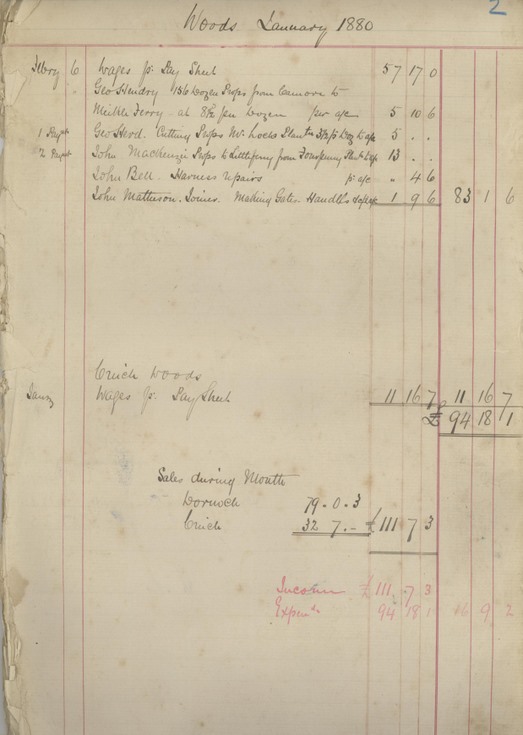 2
Woods January 1880
Febry 6 Wages pr. Pay Sheet 57 17 0
Geo Hendry 156 Dozen Props from to
Meikle Ferry at 8½ per Dozen per a/c 5 10 6
1 Geo Cutting Props Mr. Locks 5 . .
2 John MacKenzie Props to from 13 . .
John Bell. Harness repairs pr a/c " 4 6
John Matheson. Joiner. Making Gates Handles 1 9 6 83 1 6
Creich Woods
Jany Wages pr. Pay Sheet 11 16 7 11 16 7
£ 94 18 1
Sales during Month
Dornoch 79 . 0 . 3
Creich 32 7 . - £111 7 3
Income £111 . 7 3
94 18 1 16 9 2